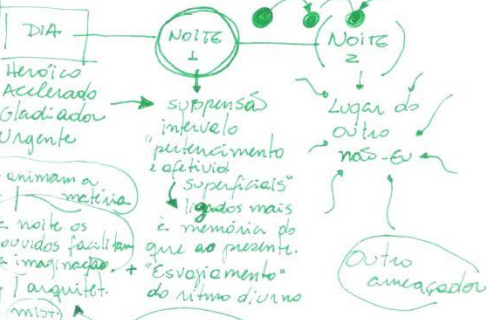 DIA
Heróico
Acelerado
Gladiador
Urgente
animam a
matéria
a noite os
ouvidos facilitam
a imaginação
arquitet.
mist.
NOITE
1
suspensão
intervalo
"pertencimento
e afetivid
superficiais"
ligados mais
à memória do
que ao presente.
+ "Esvaziamento"
do ritmo diurno
NOITE
2
Lugar do
Outro
não-Eu
Outro
ameaçador